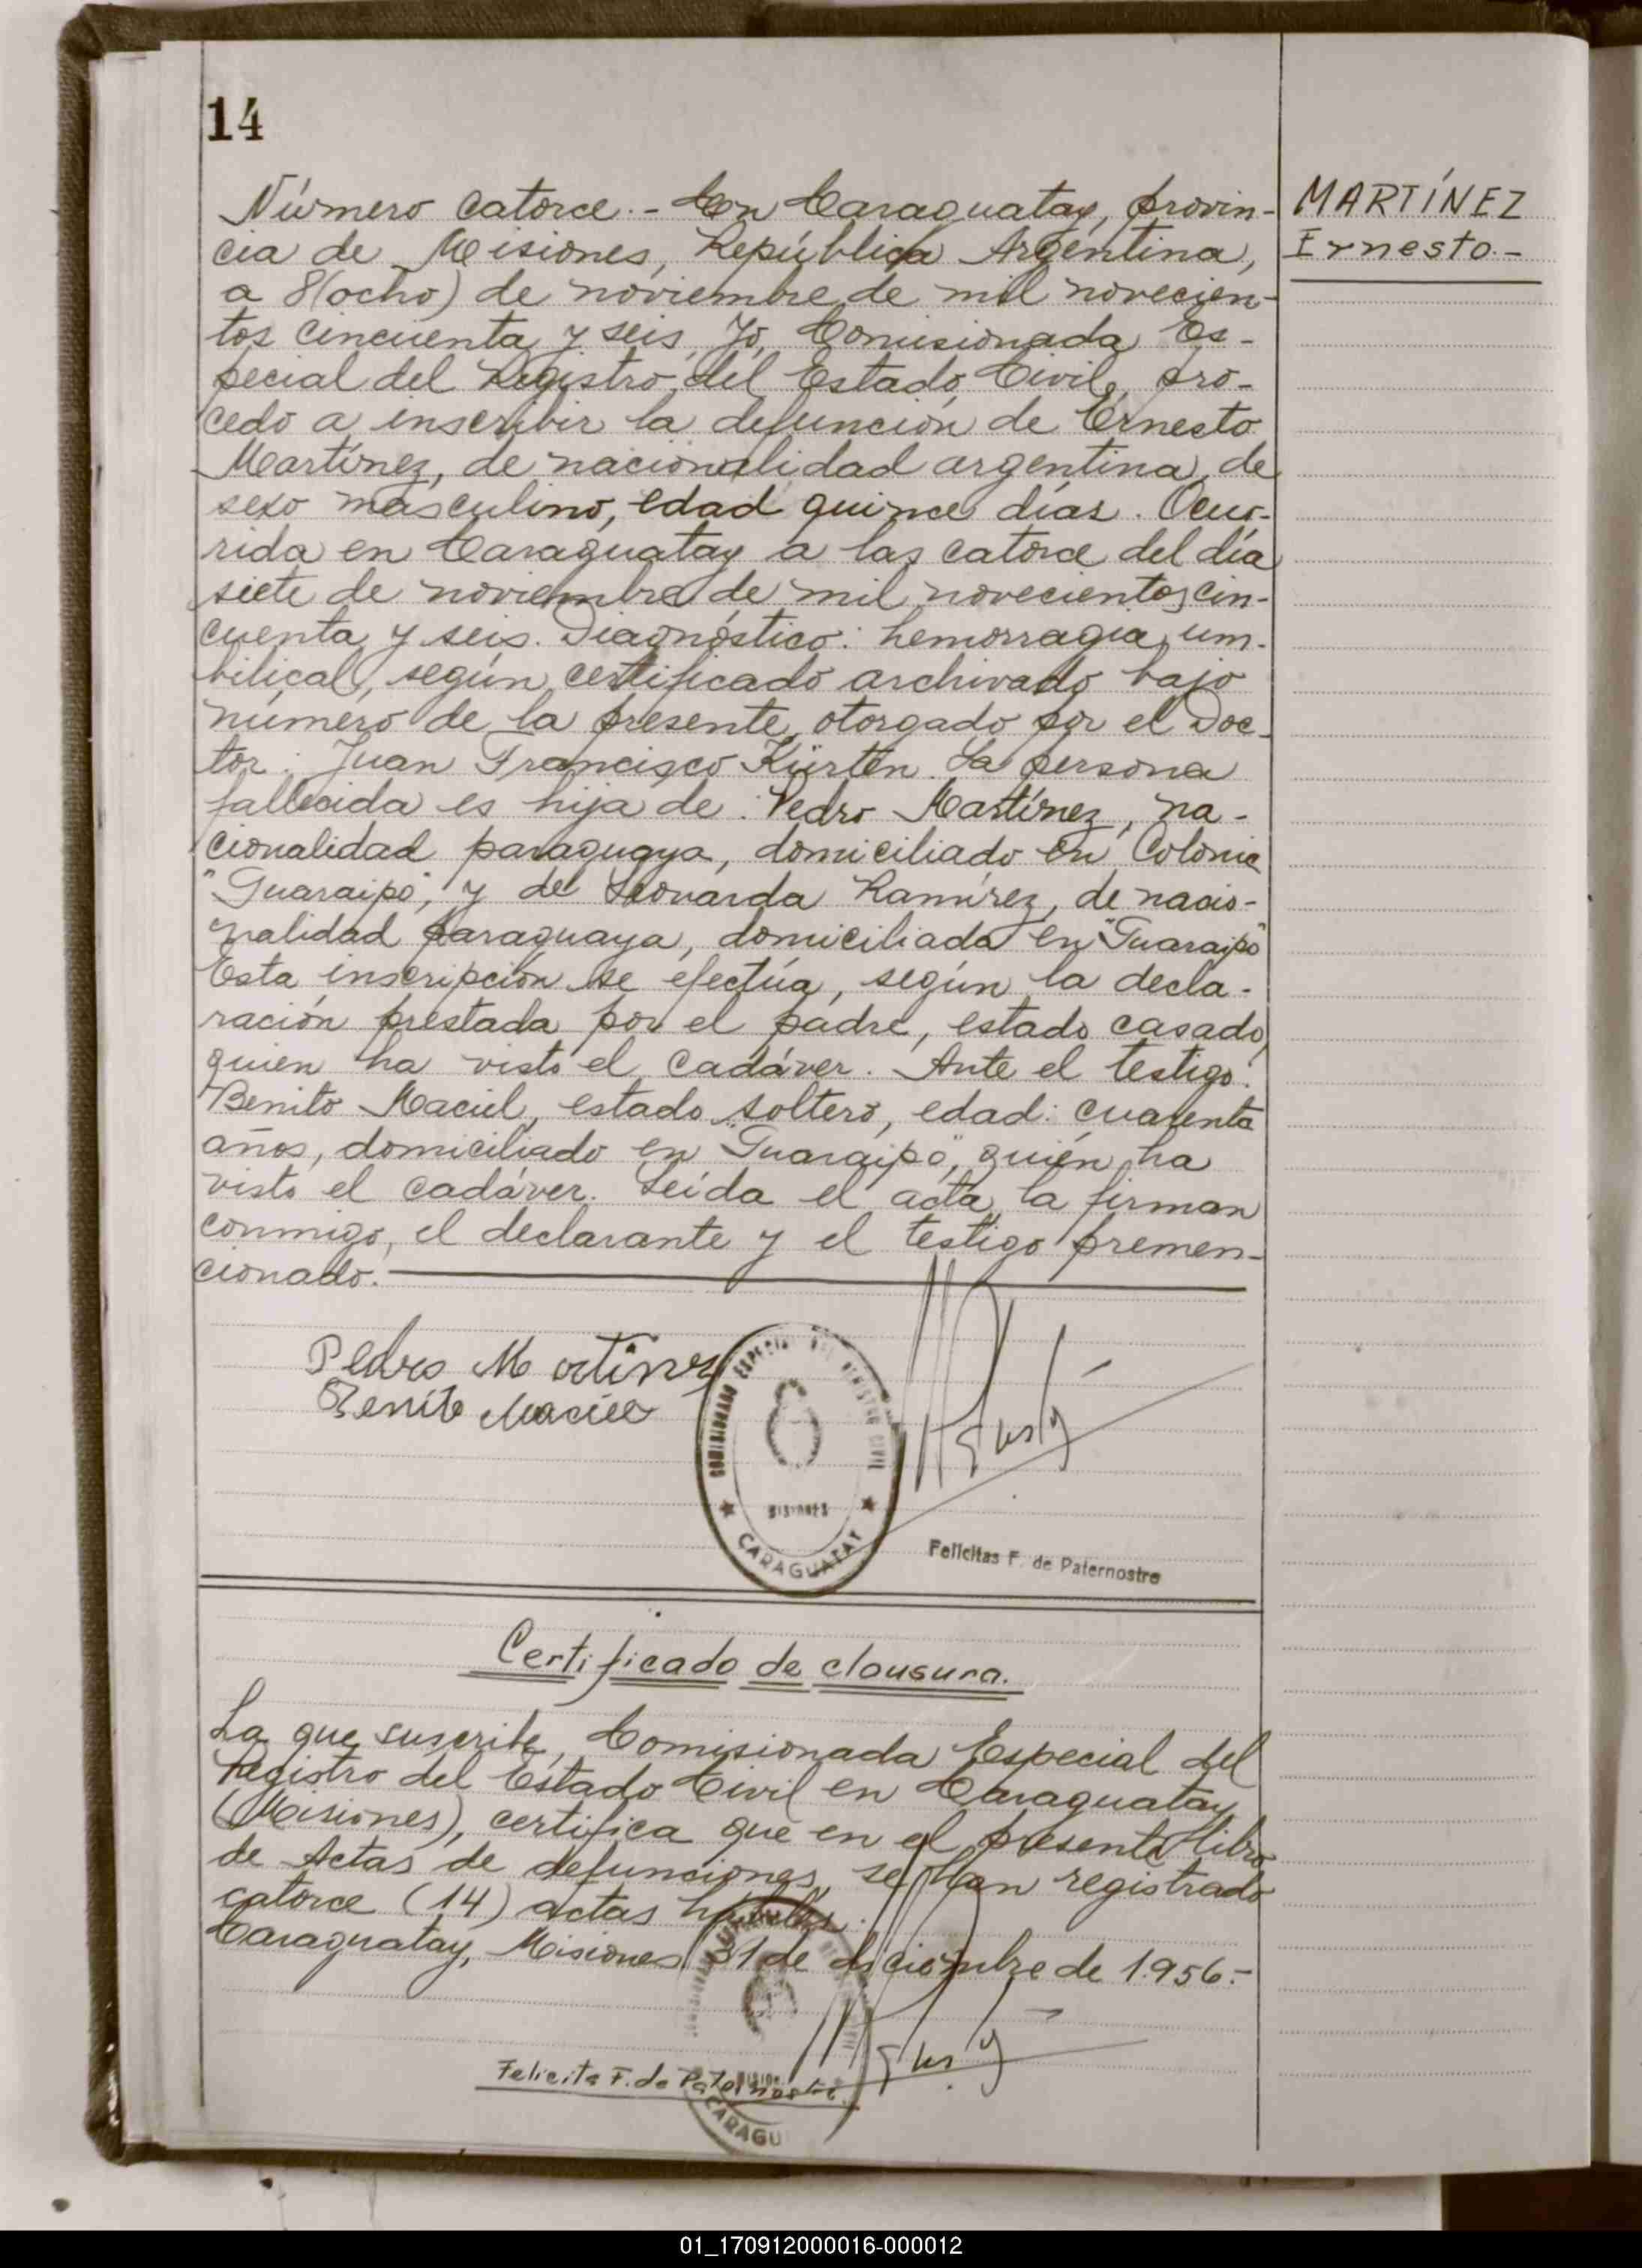 14
Número catorce.- En Caraguatay, provin-
cia de Misiones, República Argentina,
a 8(ocho) de noviembre de mil novecien-
tos cincuenta y seis, Yo, Comisionada Es-
pecial del Registro del Estado Civil, pro-
cedo a inscribir la defunción de Ernesto
Martínez, de nacionalidad argentina, de
sexo masculino, edad quince días. Ocur-
rida en Caraguatay a las catorce del día
siete de noviembre de mil novecientos cin-
cuenta y seis. Diagnóstico: hemorragia um-
bilical, según certificado archivado bajo
número de la presente, otorgado por el Doc-
tor: Juan Francisco Kürten. La persona
fallecida es hija de: Pedro Martínez, na-
cionalidad paraguaya, domiciliado en Colonia
"Guaraipo", y de Leonarda Ramírez, de nacio-
nalidad paraguaya, domiciliada en "Guaraipo"
Esta inscripción se efectúa, según la decla-
ración prestada por el padre, estado casado,
quien ha visto el cadáver. Ante el testigo:
Benito Maciel, estado soltero, edad: cuarenta
años, domiciliado en "Guaraipo", quién ha
visto el cadáver. Leída el acta, la firman
conmigo, el declarante y el testigo premen-
cionado.
MARTÍNEZ
Ernesto.-
Pedro Martinez
Benito Maciel
COMISIONADO ESPECIAL DEL REGISTRO CIVIL
MISIONES
CARAGUATAY
Felicitas F. de Paternostre
Certificado de clausura.
La que suscribe, Comisionada Especial del
Registro del Estado Civil en Caraguatay
(Misiones), certifica que en el presente libro
de Actas de defunciones, se han registrado
catorce (14) actas
Caraguatay, Misiones, 31 de diciembre de 1.956.-
Felicita F. de Paternostre
CARAGU
01_170912000016-000012